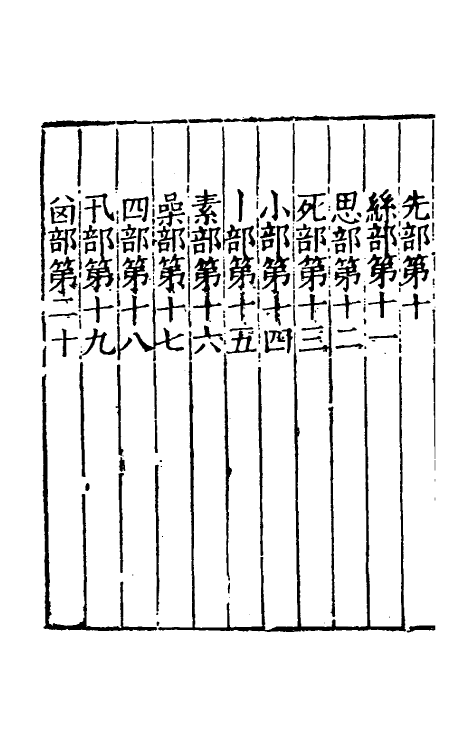 先部第十
絲部第十一
思部第十二
死部第十三
小部第十四
丨部第十五
素部第十六
喿部第十七
四部第十八
卂部第十九
囪部第二十